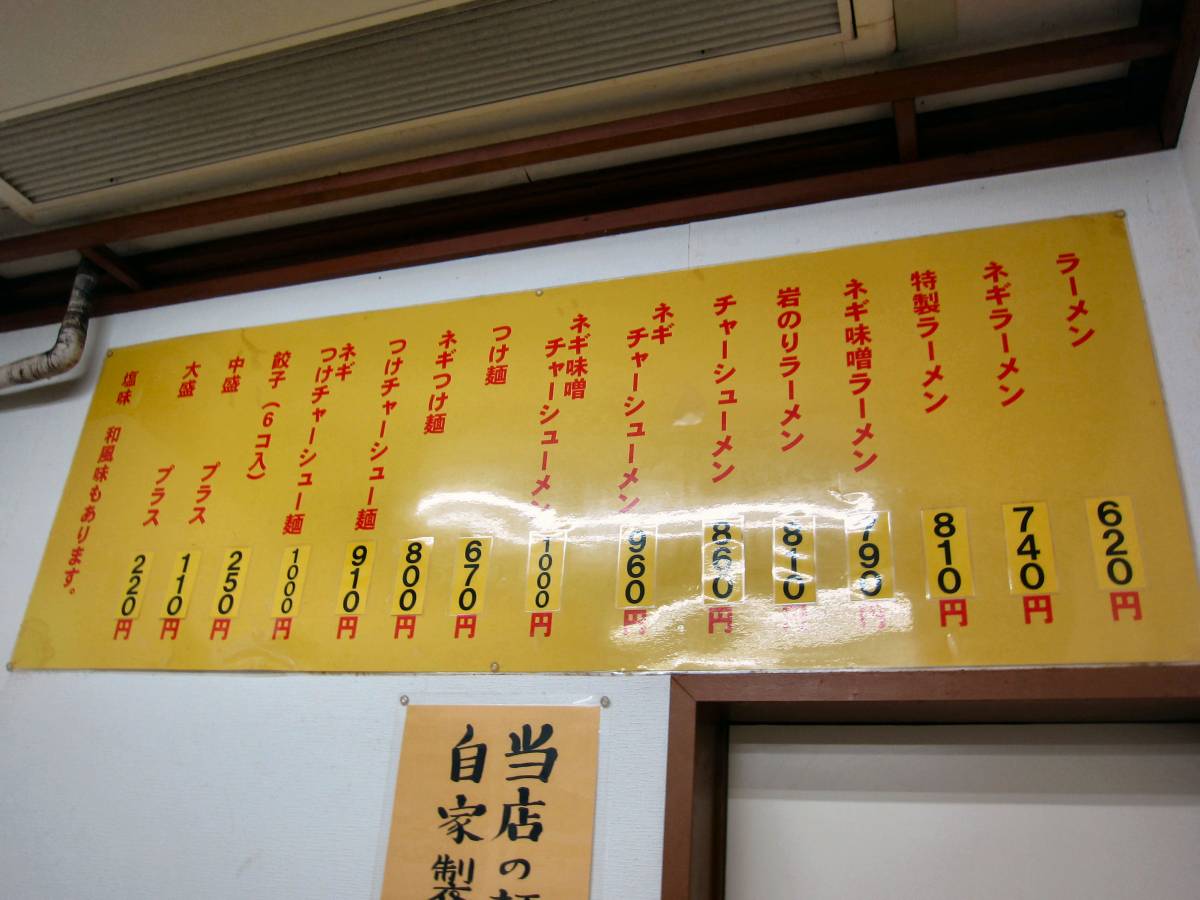 ラーメン 620円
ネギラーメン 740円
特製ラーメン 810円
ネギ味噌ラーメン 790円
岩のりラーメン 810円
チャーシューメン 860円
ネギ
チャーシューメン 960円
ネギ味噌
チャーシューメン 1000円
つけ麺 670円
ネギつけ麺 800円
つけチャーシュー麺 910円
ネギ
つけチャーシュー麺 1000円
餃子（6コ入） 250円
中盛 プラス 110円
大盛 プラス 220円
塩味 和風味もあります。
当店の
自家製